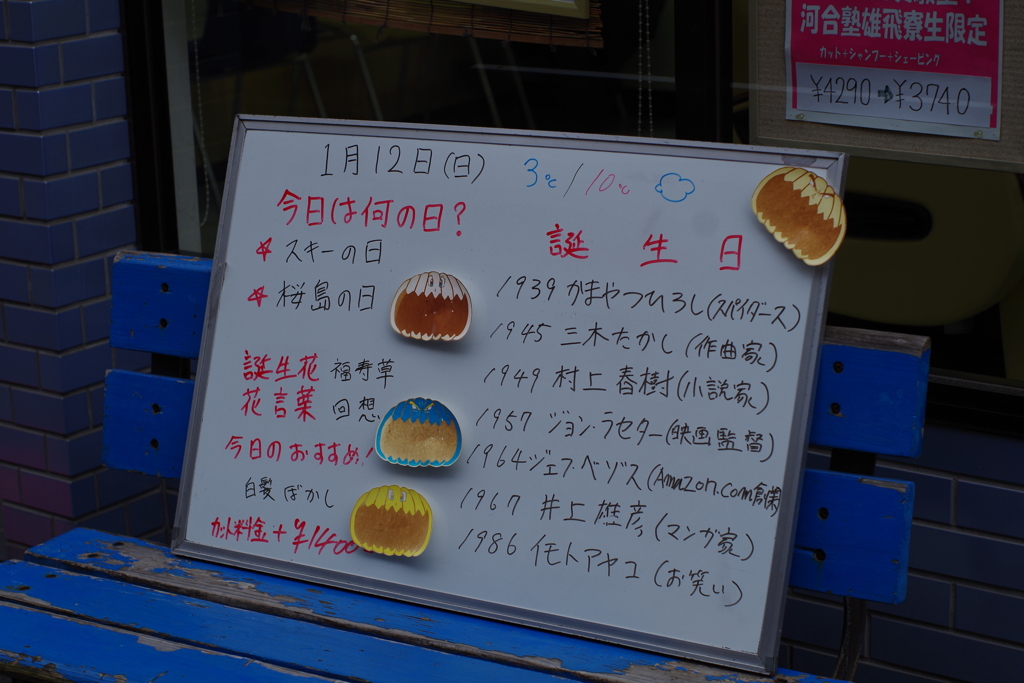 河合塾雄飛寮生限定
カット+シャンプー+シェービング
¥4290➡¥3740
1月12日(日) 3℃/10℃
今日は何の日?
☆スキーの日
☆桜島の日
誕生花 福寿草
花言葉 回想
今日のおすすめ!
白髪ぼかし
カット料金+¥1400
誕生日
1939 かまやつひろし(スパイダース)
1945 三木たかし(作曲家)
1949 村上春樹(小説家)
1957 ジョン・ラセター(映画監督)
1964 ジェフ・ベゾス(Amazon.com創業)
1967 井上雄彦(マンガ家)
1986 イモトアヤコ(お笑い)